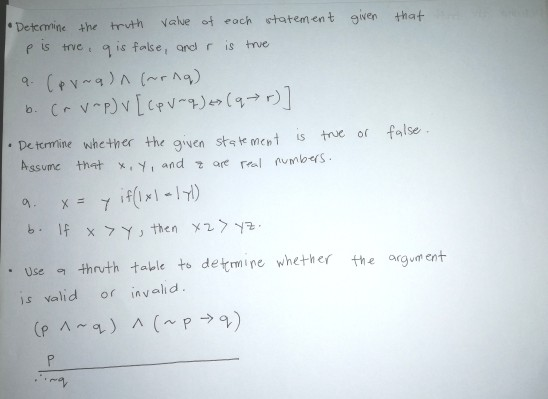 • Determine the truth value of each statement given that
p is true, q is false, and r is true
a. (p ∨ ~q) ∧ (~r ∧ q)
b. (r ∨ ~p) ∨ [(p ∨ ~q) ↔ (q → r)]
• Determine whether the given statement is true or false.
Assume that x, y, and z are real numbers.
a. x = y if (|x| = |y|)
b. If x > y, then xz > yz.
• Use a thruth table to detrmine whether the argument
is valid or invalid.
(p ∧ ~q) ∧ (~p → q)
p
∴ ~q